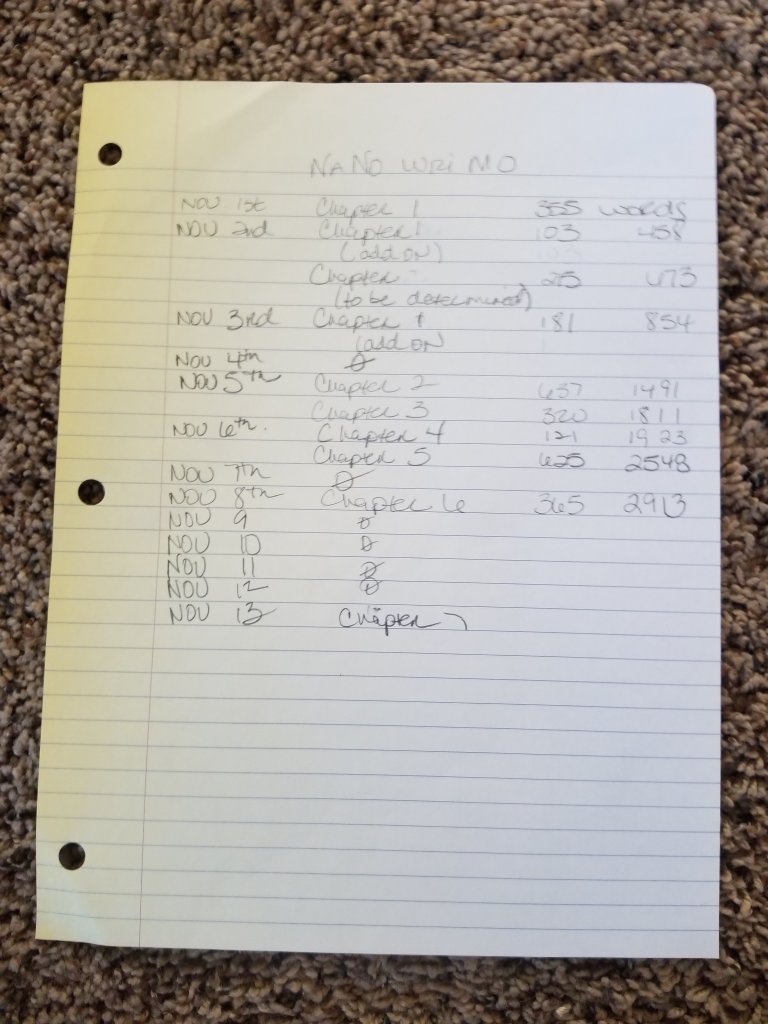 NANO WRI MO
NOV 1st Chapter 1 355 words
NOV 2nd Chapter 1 103 458
(add on)
Chapter 215 673
(to be determined)
NOV 3rd Chapter 1 181 854
(add on
NOV 4th Ø
NOV 5th Chapter 2 637 1491
Chapter 3 320 1811
NOV 6th. Chapter 4 121 1923
Chapter 5 625 2548
NOV 7th Ø
NOV 8th Chapter 6 365 2913
NOV 9 Ø
NOV 10 Ø
NOV 11 Ø
NOV 12 Ø
NOV 13 Chapter 7